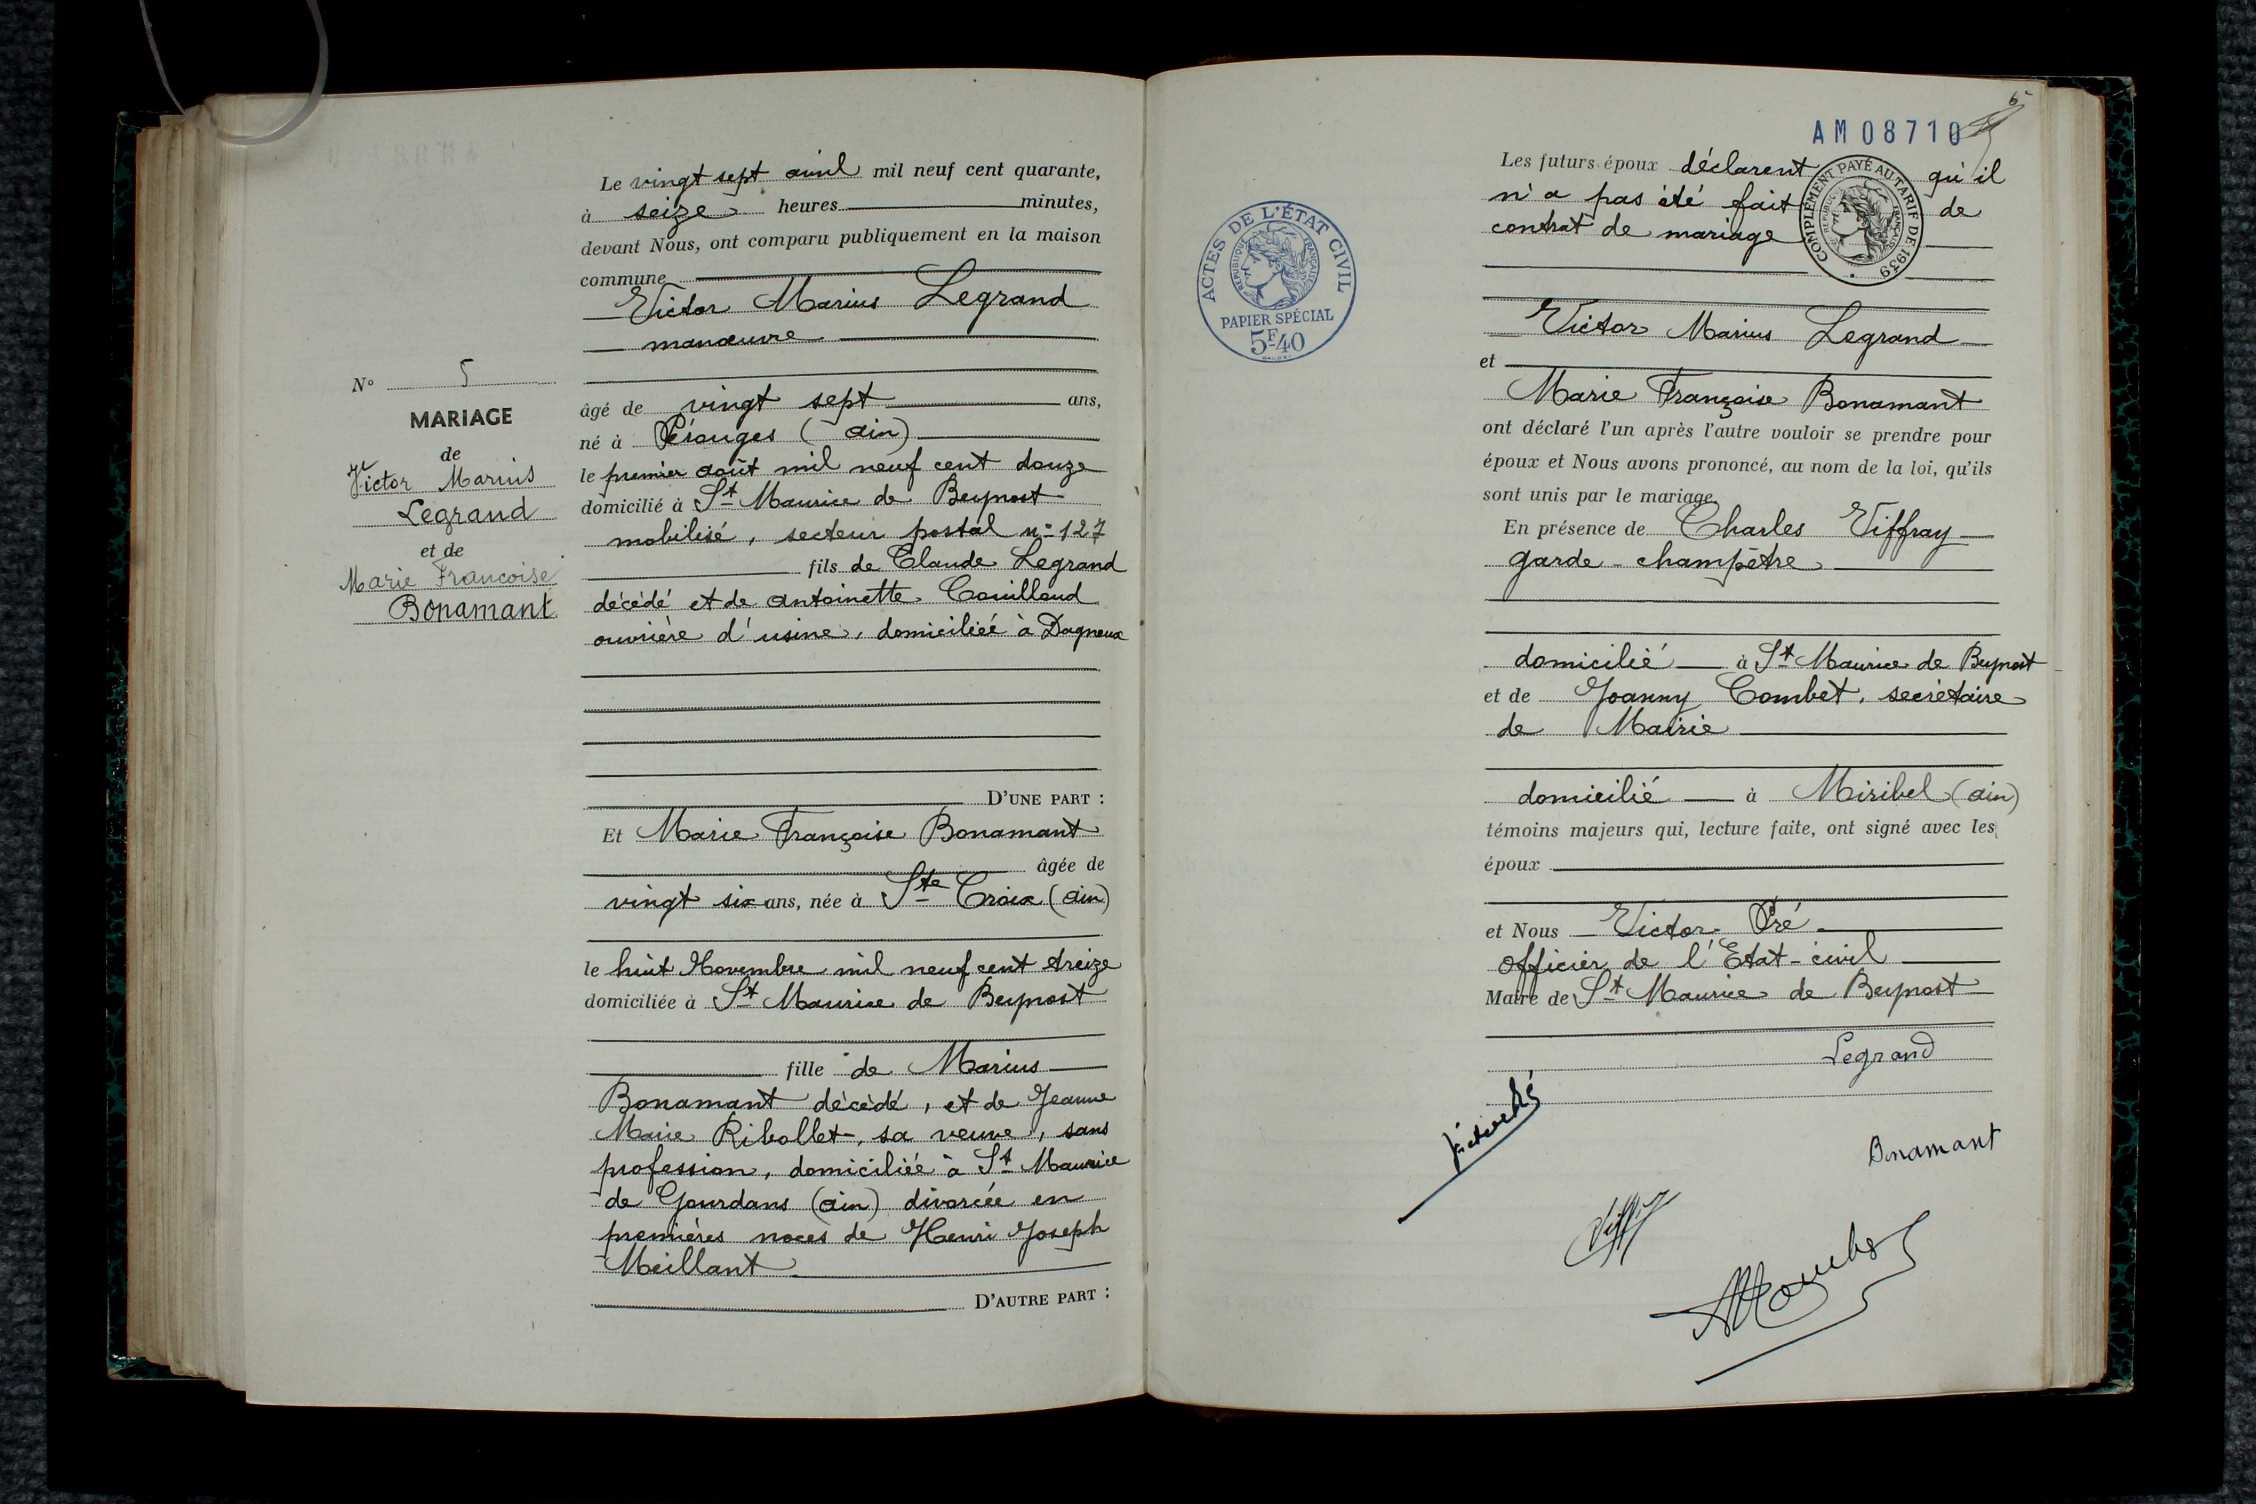 N° 5
MARIAGE
de
Victor Marius
Legrand
et de
Marie Francoise
Bonamant
Le vingt sept avril mil neuf cent quarante,
à seize heures minutes,
devant Nous, ont comparu publiquement en la maison
commune
Victor Marius Legrand
manœuvre
âgé de vingt sept ans,
né à Pérouges (Ain)
le premier août mil neuf cent douze
domicilié à St Maurice de Beynost
mobilisé, secteur postal n° 127
fils de Claude Legrand
décédé et de Antoinette Couilloud
ouvrière d'usine, domiciliée à Dagneux
D'UNE PART :
Et Marie Françoise Bonamant
âgée de
vingt six ans, née à Ste Croix (Ain)
le huit Novembre mil neuf cent treize
domiciliée à St Maurice de Beynost
fille de Marius
Bonamant décédé, et de Jeanne
Marie Ribollet, sa veuve, sans
profession, domiciliée à St Maurice
de Gourdans (Ain) divorcée en
premières noces de Henri Joseph
Meillant
D'AUTRE PART :
ACTES DE L'ÉTAT CIVIL
RÉPUBLIQUE FRANÇAISE
PAPIER SPÉCIAL
5F40
6
AM08710
COMPLÉMENT PAYÉ AU TARIF DE 1939
RÉPUBLIQUE FRANÇAISE
Les futurs époux déclarent qu'il
n'a pas été fait de
contrat de mariage
Victor Marius Legrand
et
Marie Françoise Bonamant
ont déclaré l'un après l'autre vouloir se prendre pour
époux et Nous avons prononcé, au nom de la loi, qu'ils
sont unis par le mariage.
En présence de Charles Viffray
garde-champêtre
domicilié à St Maurice de Beynost
et de Joanny Combet, secrétaire
de Mairie
domicilié à Miribel (Ain)
témoins majeurs qui, lecture faite, ont signé avec les
époux
et Nous Victor Pré
officier de l'Etat-civil
Maire de St Maurice de Beynost
Legrand
Victor Pré
Bonamant